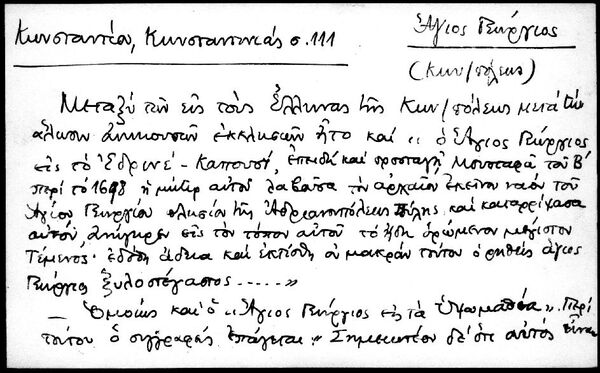 Κωνσταντίου, Κωνσταντινιάς σ. 111
Ἅγιος Γεώργιος
(Κων/πόλεως)
Μεταξὺ τῶν εἰς τοὺς Ἕλληνας τῆς Κων/πόλεως μετὰ τὴν
ἅλωσιν ἀνηκουσῶν ἐκκλησιῶν ἦτο καὶ "ὁ Ἅγιος Γεώργιος
εἰς τὸ Ἐδρινέ - Καπουσί, ἐπειδὴ καὶ προσταγῇ Μουσταφᾶ τοῦ Β'
περὶ τὸ 1698 ἡ μήτηρ αὐτοῦ λαβοῦσα τὸν ἀρχαῖον ἐκεῖνον ναὸν τοῦ
Ἁγίου Γεωργίου πλησίον τῆς Ἀδριανουπόλεως Πύλης καὶ καταρρίψασα
αὐτόν, ἀνήγειρεν εἰς τὸν τόπον αὐτοῦ τὸ ἤδη ὁρώμενον μέγιστον
Τέμενος· ἐδόθη ἄδεια καὶ ἐκτίσθη οὐ μακρὰν τούτου ὁ ῥηθεὶς ἅγιος
Γεώργιος ξυλοστέγαστος ......."
— Ὁμοίως καὶ ὁ "Ἅγιος Γεώργιος εἰς τὰ Ὑψωμαθεῖα". Περὶ
τούτου ὁ συγγραφεὺς ἐπάγεται: "Σημειωτέον δὲ ὅτι αὐτὸς εἶναι